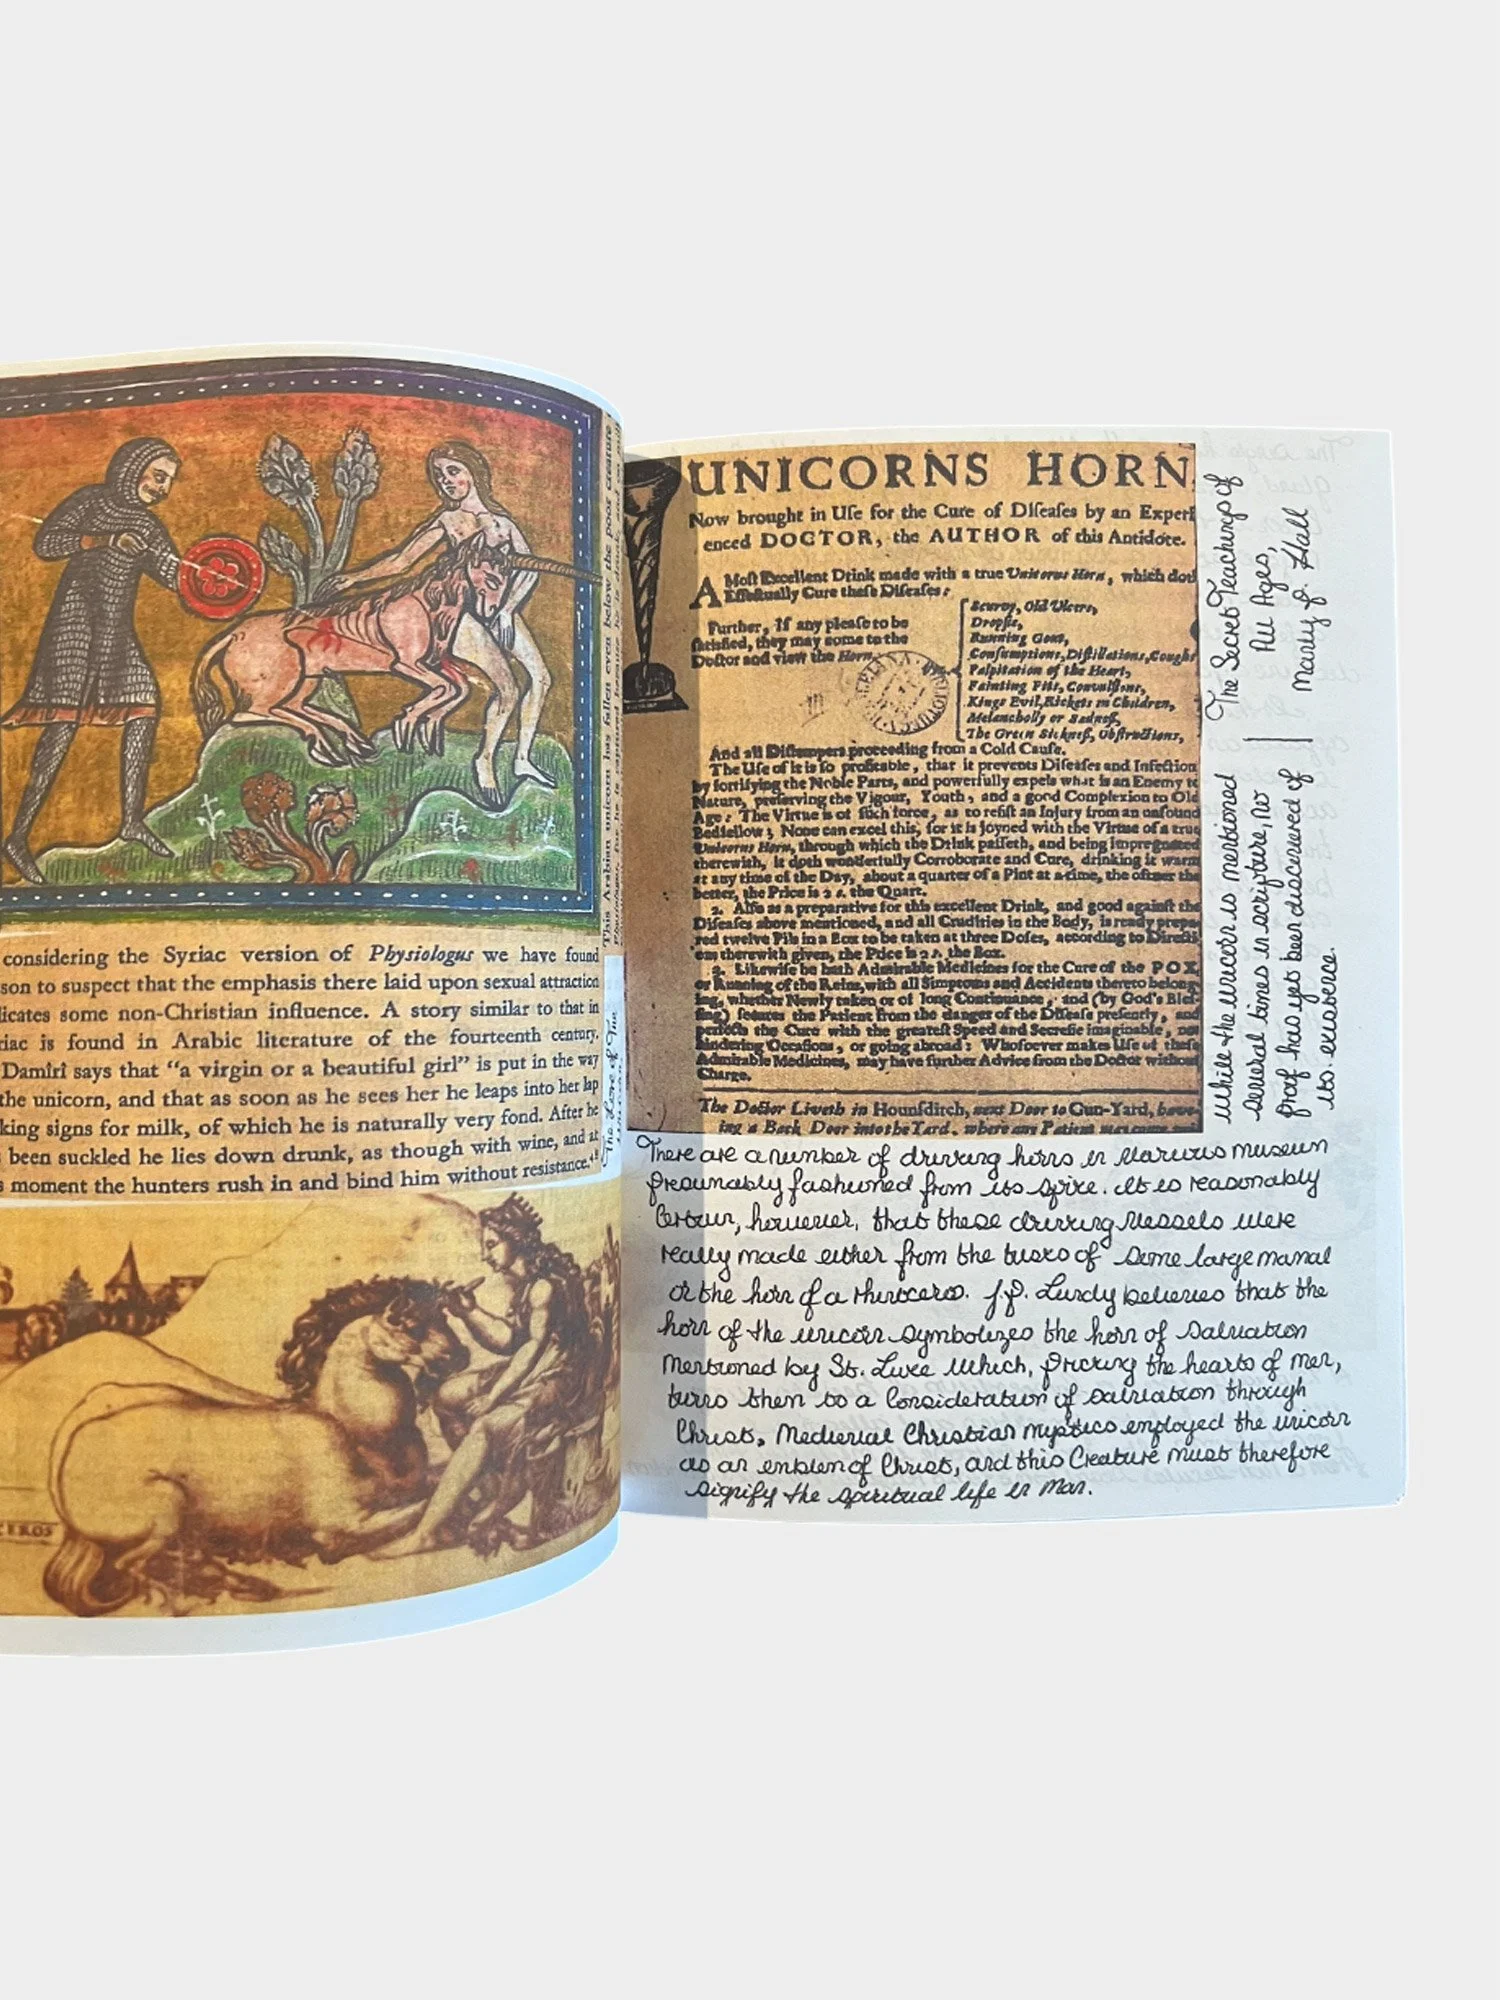 considering the Syriac version of Physiologus we have found
son to suspect that the emphasis there laid upon sexual attraction
licates some non-Christian influence. A story similar to that in
riac is found in Arabic literature of the fourteenth century.
Damîrî says that “a virgin or a beautiful girl” is put in the way
the unicorn, and that as soon as he sees her he leaps into her lap
king signs for milk, of which he is naturally very fond. After he
been suckled he lies down drunk, as though with wine, and at
s moment the hunters rush in and bind him without resistance.
This Arabian unicorn has fallen even below the poor creature
The Lore of The
EROS
UNICORNS HORN
Now brought in Uſe for the Cure of Diſeaſes by an Experi
enced DOCTOR, the AUTHOR of this Antidote.
A Moſt Excellent Drink made with a true Unicorns Horn, which doth
Effectually Cure theſe Diſeaſes:
Further, If any pleaſe to be
ſatisfied, they may come to the
Doctor and view the Horn.
Scurvy, Old Ulcers,
Dropſie,
Running Gout,
Conſumptions, Diſtillations, Coughs
Palpitation of the Heart,
Fainting Fits, Convulſions,
Kings Evil, Rickets in Children,
Melancholly or Sadneſs,
The Green Sickneſs, Obſtructions,
And all Diſtempers proceeding from a Cold Cauſe.
The Uſe of it is ſo profitable, that it prevents Diſeaſes and Infection
by fortifying the Noble Parts, and powerfully expels what is an Enemy to
Nature, preſerving the Vigour, Youth, and a good Complexion to Old
Age: The Virtue is of ſuch force, as to reſiſt an Injury from an unſound
Bedfellow; None can excel this, for it is joyned with the Virtue of a true
Unicorns Horn, through which the Drink paſſeth, and being impregnated
therewith, it doth wonderfully Corroborate and Cure, drinking it warm
at any time of the Day, about a quarter of a Pint at a time, the oftner the
better, the Price is 2 s. the Quart.
2. Alſo as a preparative for this excellent Drink, and good againſt the
Diſeaſes above mentioned, and all Crudities in the Body, is ready prepa-
red twelve Pils in a Box to be taken at three Doſes, according to Directi-
on therewith given, the Price is 2 s. the Box.
3. Likewiſe he hath Admirable Medicines for the Cure of the POX,
or Running of the Reins, with all Symptoms and Accidents thereto belong-
ing, whether Newly taken or of long Continuance, and (by God's Bleſ-
ſing) ſecures the Patient from the danger of the Diſeaſe preſently, and
perfects the Cure with the greateſt Speed and Secreſie imaginable, not
hindering Occaſions, or going abroad: Whoſoever makes Uſe of theſe
Admirable Medicines, may have further Advice from the Doctor without
Charge.
The Doctor Liveth in Hounſditch, next Door to Gun-Yard, have-
ing a Back Door into the Yard, where any Patient may come
The Secret Teachings of
All Ages,
Manly P. Hall
While the unicorn is mentioned
several times in scripture, no
proof has yet been discovered of
its existence.
There are a number of drinking horns in various museum
presumably fashioned from its spike. It is reasonably
certain, however, that these drinking vessels were
really made either from the tusks of some large mamal
or the horn of a rhinoceros. J.P. Lundy believes that the
horn of the unicorn symbolizes the horn of salvation
mentioned by St. Luke which, pricking the hearts of men,
turns them to a consideration of salvation through
Christ. Medieval Christian mystics employed the unicorn
as an emblem of Christ, and this creature must therefore
signify the spiritual life in man.